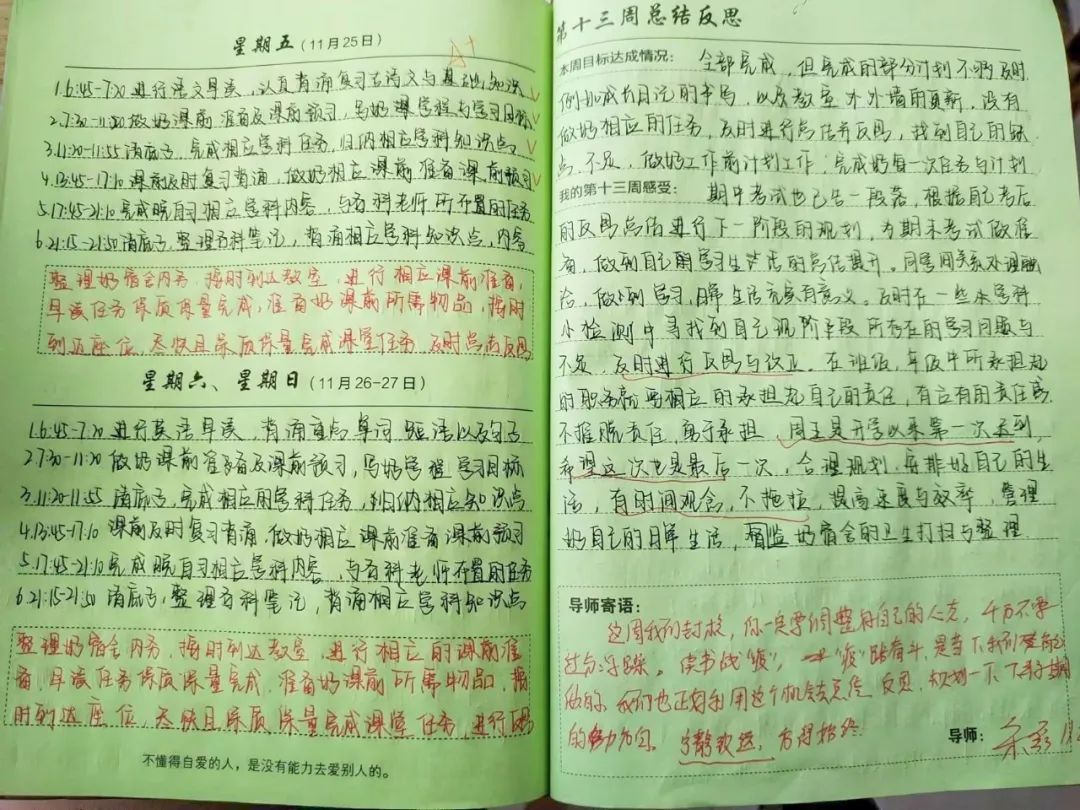 星期五(11月25日)
A+
1.6:45-7:20 进行语文早读,认真背诵复习古诗文与基础知识
2.7:30-11:20 做好课前准备及课前预习,写好课学程与学习目标
3.11:20-11:55 清底子,完成相应学科任务,归纳相应学科知识点
4.13:45-17:10 课前及时复习背诵,做好相应课前准备课前预习
5.17:45-21:10完成晚自习相应学科内容,与各科老师所布置的任务
6.21:15-21:50清底子,整理各科笔记,背诵相应学科知识点,内容
整理好宿舍内务,按时到达教室,进行相应课前准备,
早读任务保质保量完成,准备好课前所需物品,按时
到达座位,尽快且保质保量完成课堂任务 及时总结反思
星期六、星期日(11月26-27日)
1.6:45-7:20 进行英语早读,背诵重点单词 短语以及句子
2.7:30-11:20 做好课前准备及课前预习,写好学程 学习目标
3.11:20-11:55 清底子,完成相应的学科任务,归纳相应知识点
4.13:45-17:10 课前及时复习背诵,做好相应课前准备课前预习
5.17:45-21:10完成晚自习相应学科内容,与各科老师布置的任务
6.21:15-21:50 清底子,整理各科笔记,背诵相应学科知识点
整理好宿舍内务,按时到达教室,进行相应的课前准
备,早读任务保质保量完成,准备好课前所需物品,按
时到达座位,尽快且保质保量完成课堂任务,进行反思
不懂得自爱的人,是没有能力去爱别人的。
第十三周总结反思
本周目标达成情况: 全部完成,但完成的部分计划不够及时
例如成长日记的书写,以及教室外外墙的更新,没有
做好相应的任务,及时进行总结并反思,找到自己的缺
点,不足,做好工作前计划工作,完成好每一次任务与计划
我的第十三周感受: 期中考试也已告一段落,根据自己考后
的反思总结进行下一阶段的规划,为期末考试做准
备,做到自己的学习生活的总结提升。同学间关系处理融
洽,做到学习,日常生活充实有意义。及时在一些本学科
小检测中寻找到自己现阶段所存在的学习问题与
不足,及时进行反思与改正。在班级,年级中所承担起
的职务就要相应的承担起自己的责任,有应有的责任感
不推脱责任,勇于承担,周五是开学以来第一次迟到,
希望这次也是最后一次,合理规划,安排好自己的生
活,有时间观念,不拖拉,提高速度与效率,管理
好自己的日常生活,做好宿舍的卫生打扫与整理
导师寄语:
这周我们封校,你一定要调整好自己的心态,千万不要
过分浮躁。读书战"疫",一"疫"路奋斗,是当下我们要
做的,我们也正好利用这个机会去反思,规划一下下半学期
的努力方向。宁静致远,方得始终
导师: